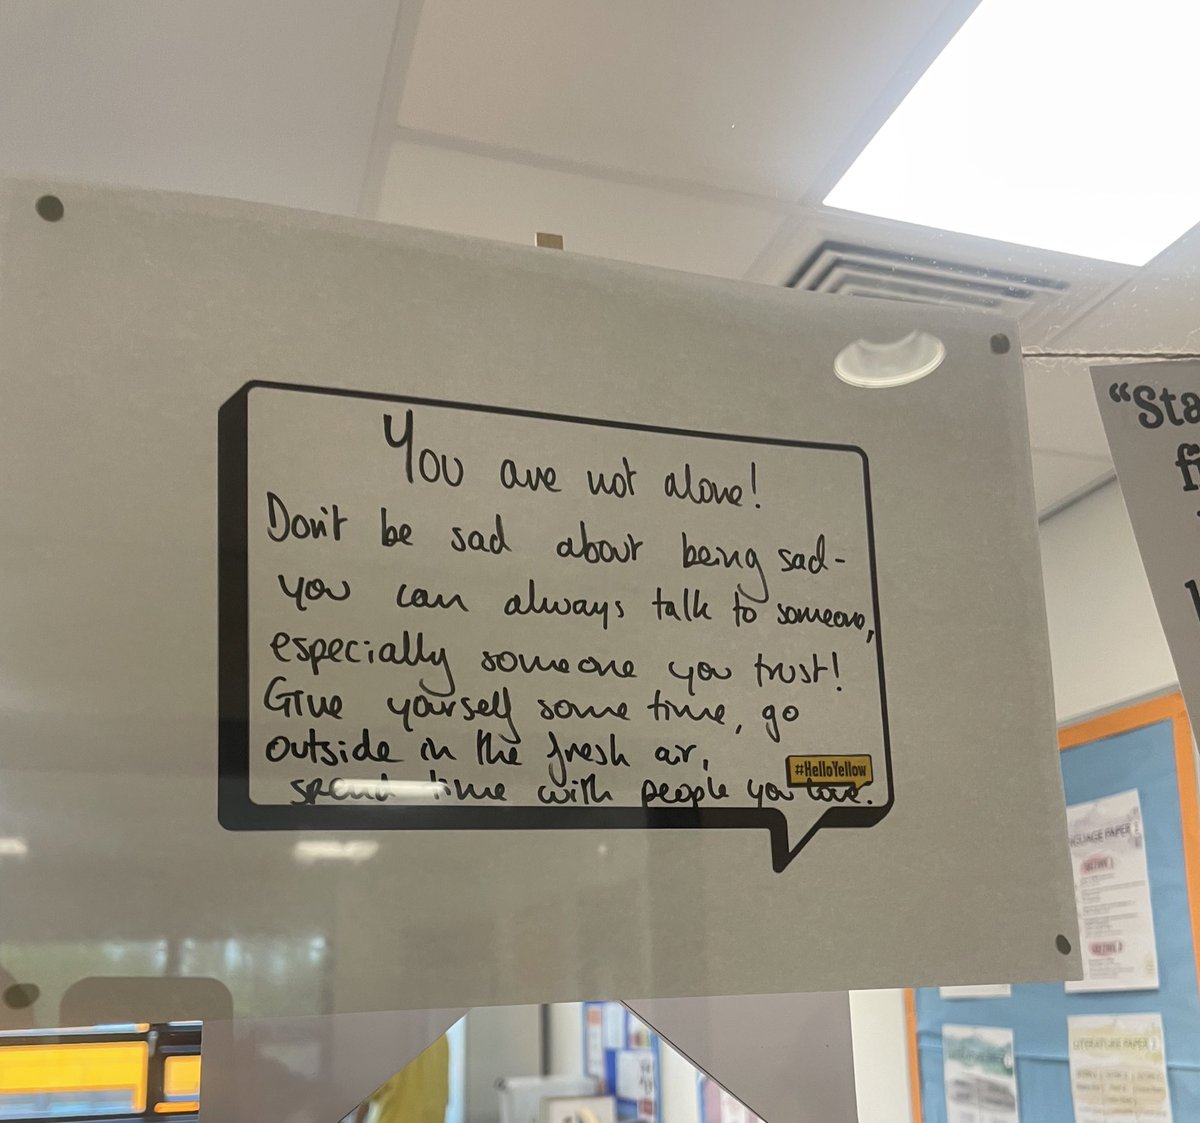 You are not alone!
Don't be sad about being sad-
you can always talk to someone,
especially someone you trust!
Give yourself some time, go
outside in the fresh air,
spend time with people you love.
#HelloYellow
"Sta
fi
LANGUAGE PAPER
LITERATURE PAPER